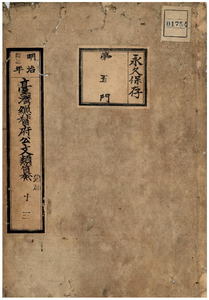 永久保存
第五門
明治
年
臺灣總督府公文類纂
十三
01754